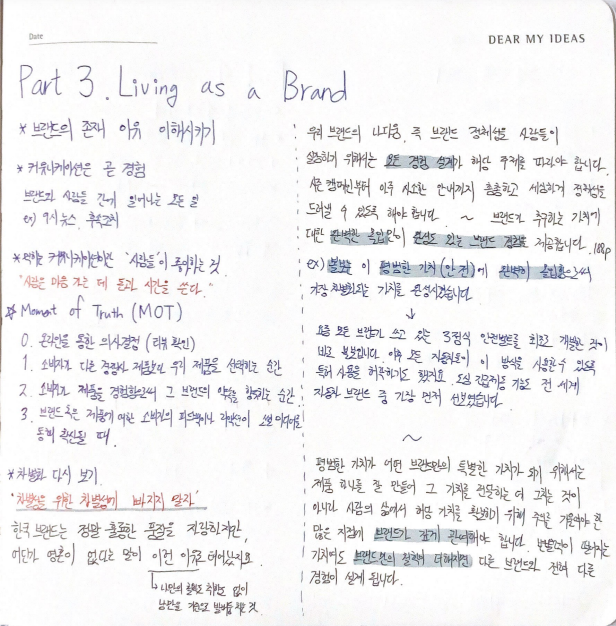 Date
DEAR MY IDEAS
Part 3. Living as a Brand
* 브랜드의 존재 이유 이해시키기
* 커뮤니케이션은 곧 경험
브랜드와 사람들 간에 일어나는 모든 일
ex) 9시 뉴스,
* 먹히는 커뮤니케이션이란 '사람들'이 좋아하는 것.
"사람은 마음 가는 데 돈과 시간을 쓴다."
* Moment of Truth (MOT)
0. 온라인을 통한 의사결정 (리뷰 확인)
1. 소비자가 다른 경쟁사 제품보다 우리 제품을 선택하는 순간
2. 소비자가 제품을 경험함으로써 그 브랜드의 약속을 경험하는 순간
3. 브랜드 혹은 제품에 의한 소비자의 피드백이나 리액션이 소셜 미디어를
통해 확산될 때.
* 차별화 다시 보기.
'차별을 위한 차별성에 빠지지 말자'
한국 브랜드는 정말 훌륭한 품질을 자랑하지만,
어딘가 영혼이 없다는 말이 이런 이유로
나만의 철학도 취향도 없이
남만을 것.
우리 브랜드의 나다움, 즉 브랜드 정체성을 사람들이
실감하기 위해서는 모든 경험 설계가 해당 주제를 따라야 합니다.
사은 캠페인부터 아주 사소한 안내까지 촘촘하고 세심하게 정체성을
드러낼 수 있도록 해야 합니다. ~ 브랜드가 추구하는 가치에
대한 완벽한 몰입만이 완성도 있는 브랜드 경험을 제공합니다. 108p
ex) 볼보는 이 평범한 가치(안전)에 완벽히 몰입함으로써
가장 차별화되는 가치를 완성시켰습니다.
↓
요즘 모든 브랜드가 쓰고 있는 3점식 안전벨트를 최초로 개발한 것이
바로 볼보입니다. 아주 모든 자동차들이 이 방식을 사용할 수 있도록
특허 사용을 허락하기도 했지요. 도심 긴급제동 기능도 전 세계
자동차 브랜드 중 가장 먼저 선보였습니다.
~
평범한 가치가 어떤 브랜드만의 특별한 가치가 되기 위해서는
제품 하나를 잘 만들어 그 가치를 전달하는 데 그치는 것이
아니라 사람의 삶에서 해당 가치를 확보하기 위해 주의를 기울여야 할
많은 지점에 브랜드가 깊게 관여해야 합니다. 변별력이 떨어지는
가치에도 브랜드만의 철학이 더해지면 다른 브랜드와 전혀 다른
경험이 설계 됩니다.